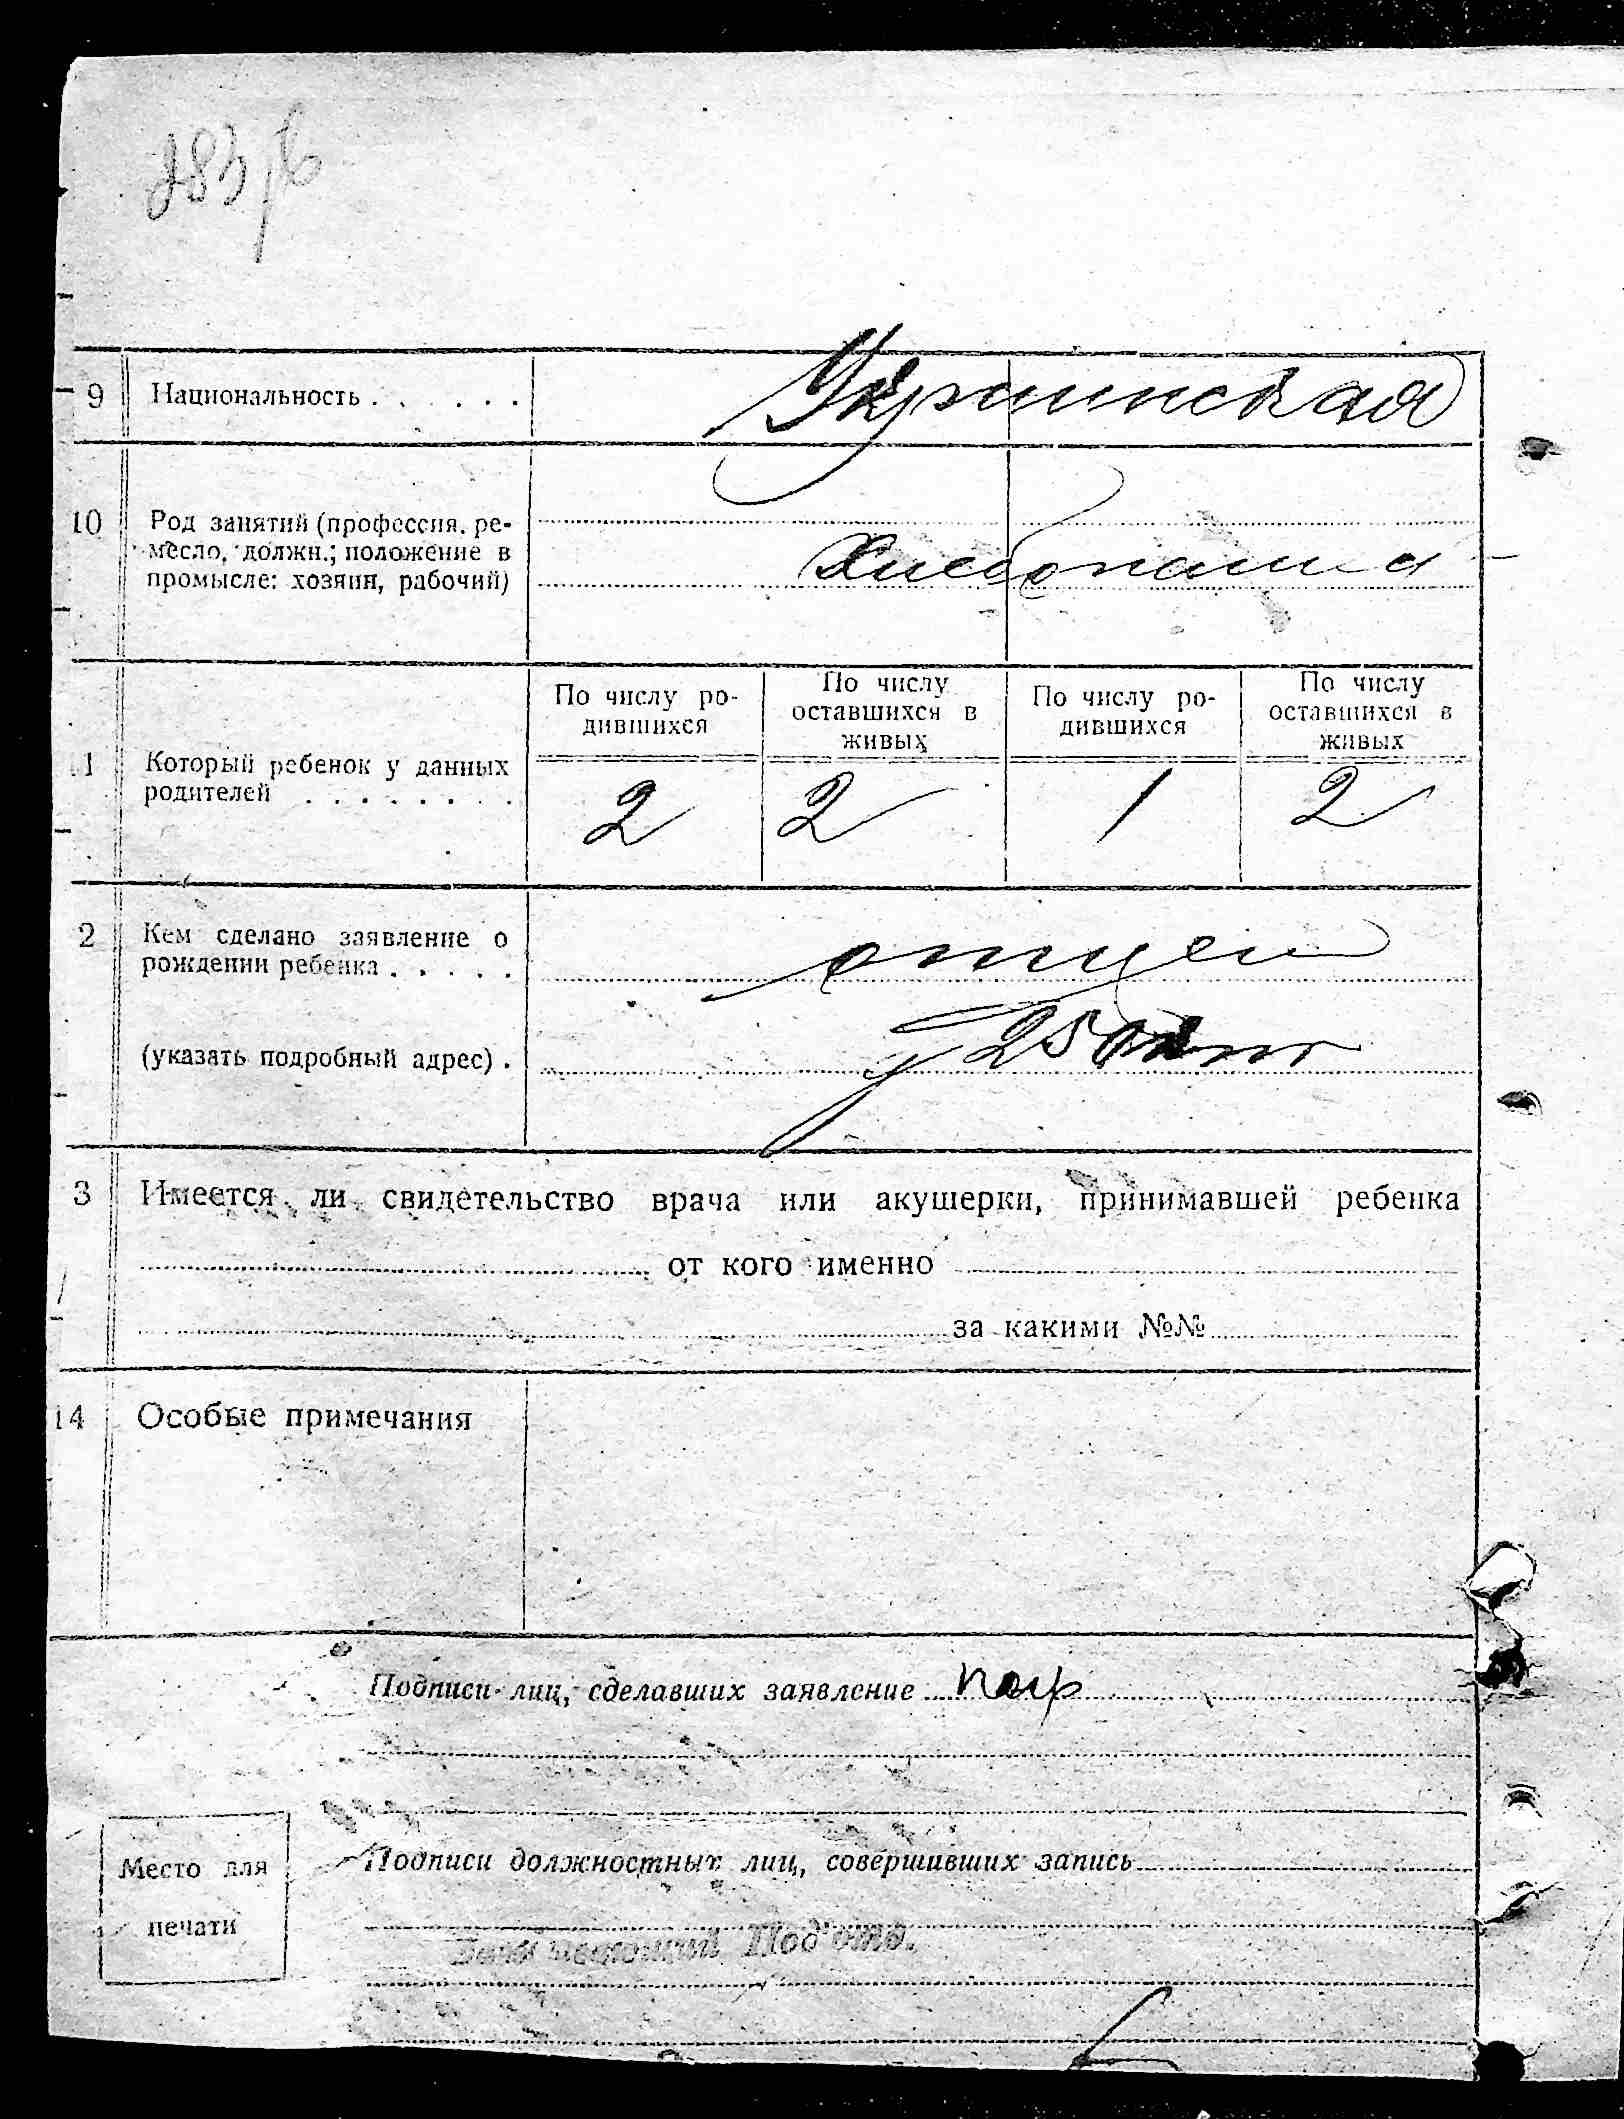 9 Национальность . . . . . . Украинская
10 Род занятий (профессия, ре-
месло, должн.; положение в
промысле: хозяин, рабочий)
Хлебопашца
По числу ро-
дившихся
По числу
оставшихся в
живых
По числу ро-
дившихся
По числу
оставшихся в
живых
1 Который ребенок у данных
родителей . . . . . . . .
2 2 1 2
2 Кем сделано заявление о
рождении ребенка . . . . .
отцем
(указать подробный адрес) .
3 Имеется ли свидетельство врача или акушерки, принимавшей ребенка
от кого именно
за какими №№
14 Особые примечания
Подписи лиц, сделавших заявление
Подписи должностных лиц, совершивших запись
Место для
печати